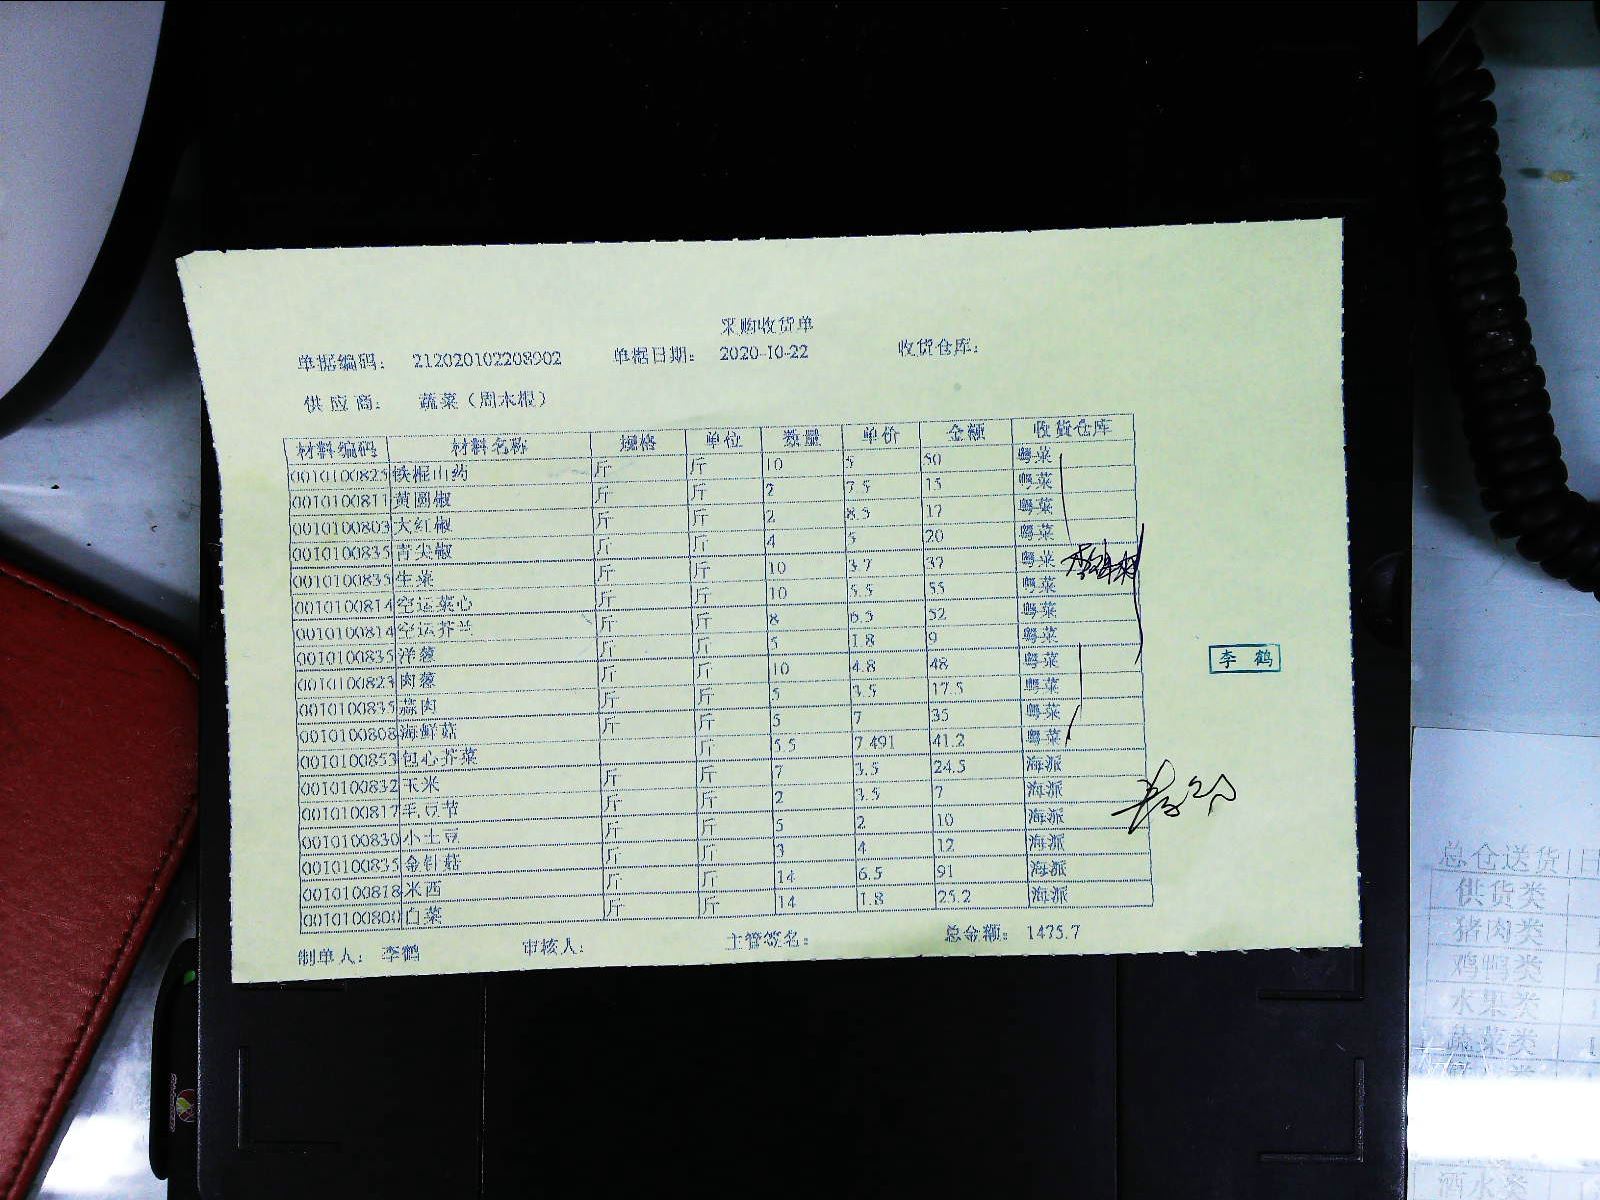 采购收货单
单据编码： 212020102208902 单据日期： 2020-10-22 收货仓库：
供应商： 蔬菜（周木根）
材料编码 材料名称 规格 单位 数量 单价 金额 收货仓库
0010100825 铁棍山药 斤 斤 10 5 50 粤菜
0010100811 黄圆椒 斤 斤 2 7.5 15 粤菜
0010100803 大红椒 斤 斤 2 8.5 17 粤菜
0010100835 青尖椒 斤 斤 4 5 20 粤菜
0010100835 生菜 斤 斤 10 3.7 37 粤菜
0010100814 空运菜心 斤 斤 10 5.5 55 粤菜
0010100814 空运芥兰 斤 斤 8 6.5 52 粤菜
0010100835 洋葱 斤 斤 5 1.8 9 粤菜
0010100823 肉葱 斤 斤 10 4.8 48 粤菜
0010100835 蒜肉 斤 斤 5 3.5 17.5 粤菜
0010100808 海鲜菇 斤 斤 5 7 35 粤菜
0010100853 包心芥菜 斤 5.5 7.491 41.2 粤菜
0010100832 玉米 斤 斤 7 3.5 24.5 海派
0010100817 毛豆节 斤 斤 2 3.5 7 海派
0010100830 小土豆 斤 斤 5 2 10 海派
0010100835 金针菇 斤 斤 3 4 12 海派
0010100818 米西 斤 斤 14 6.5 91 海派
0010100800 白菜 斤 斤 14 1.8 25.2 海派
李 鹤
制单人： 李鹤 审核人： 主管签名： 总金额： 1475.7
总仓送货 日
供货类
猪肉类
鸡鸭类
水果类
蔬菜类
酒水类